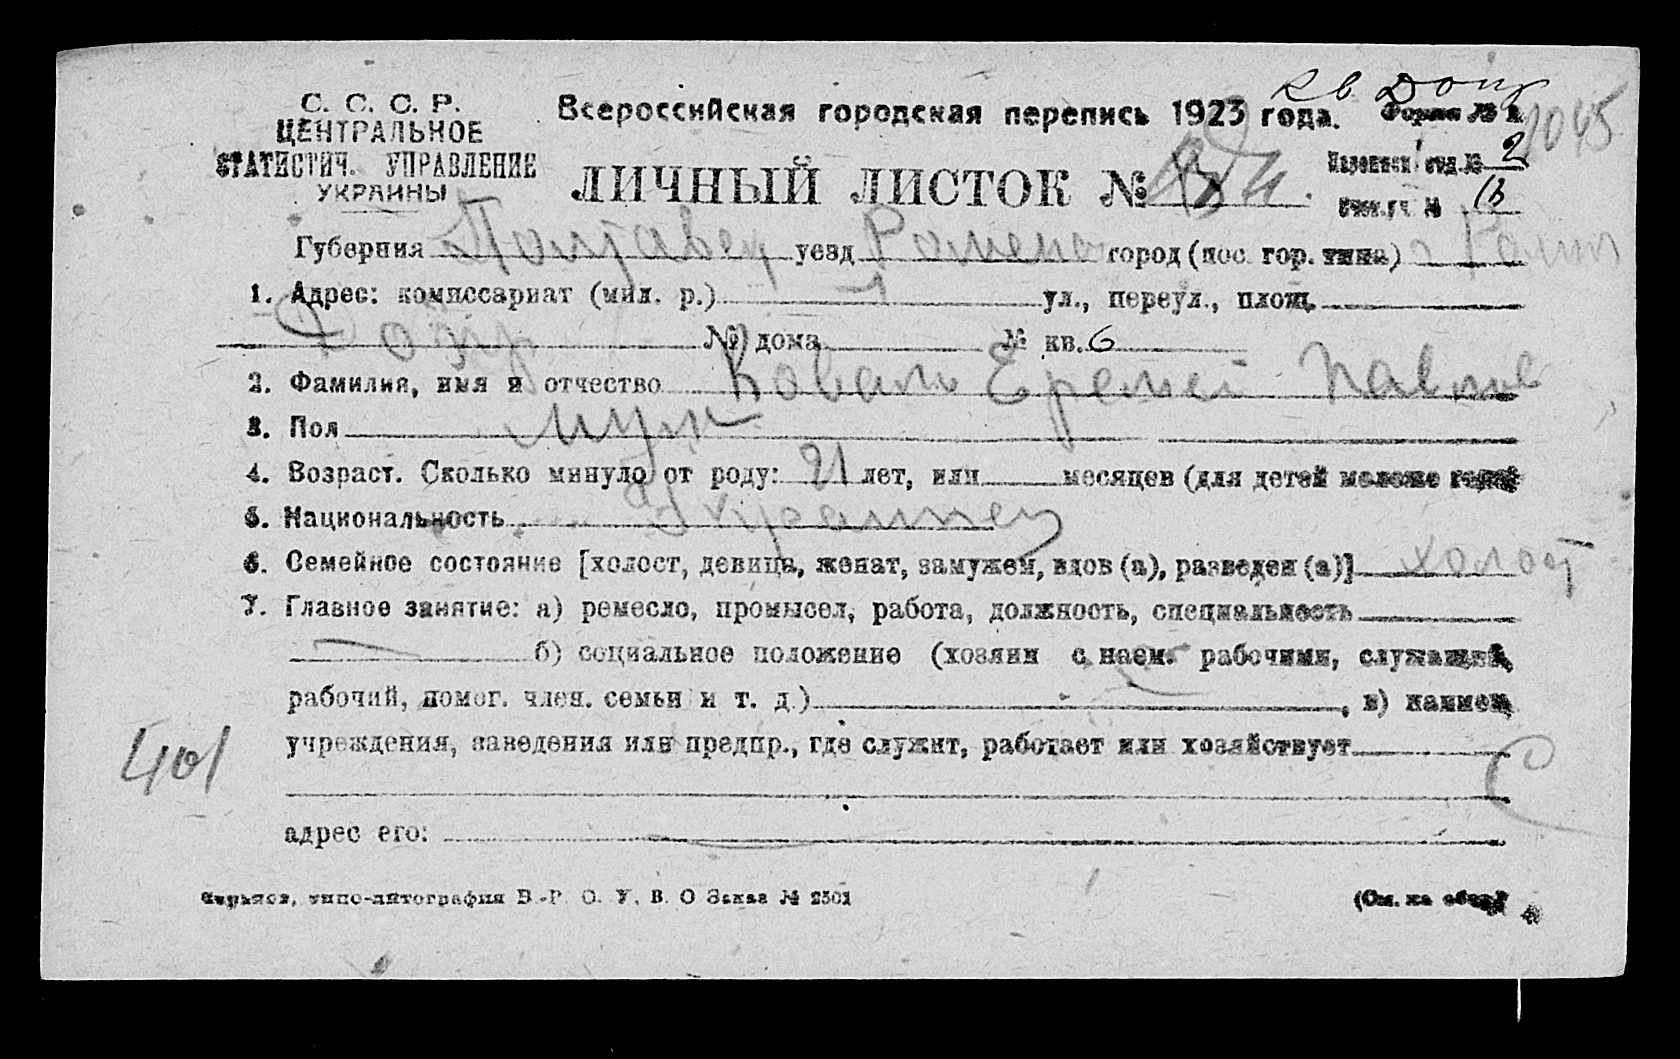 С. С. С. Р.
ЦЕНТРАЛЬНОЕ
СТАТИСТИЧ. УПРАВЛЕНИЕ
УКРАИНЫ
Всероссийская городская перепись 1923 года.
Форма № 1
1045
ЛИЧНЫЙ ЛИСТОК №
2
Губерния Полтавск уезд Роменс город (пос. гор. типа) г Ромны
1. Адрес: комиссариат (мил. р.) 1 ул., переул., площ.
№ дома № кв. 6
2. Фамилия, имя и отчество Коваль Еремей Павлов
3. Пол муж
4. Возраст. Сколько минуло от роду: 21 лет, или месяцев (для детей моложе года)
5. Национальность Украинец
6. Семейное состояние [холост, девица, женат, замужем, вдов (а), разведен (а)] холост
7. Главное занятие: а) ремесло, промысел, работа, должность, специальность
б) социальное положение (хозяин с наем. рабочими, служащий,
рабочий, помог. член. семьи и т. д.) , в) наимен.
учреждения, заведения или предпр., где служит, работает или хозяйствует
401
адрес его:
Харьков, типо-литография В.-Р. О. У. В. О Заказ № 2501
(См. на обор.)